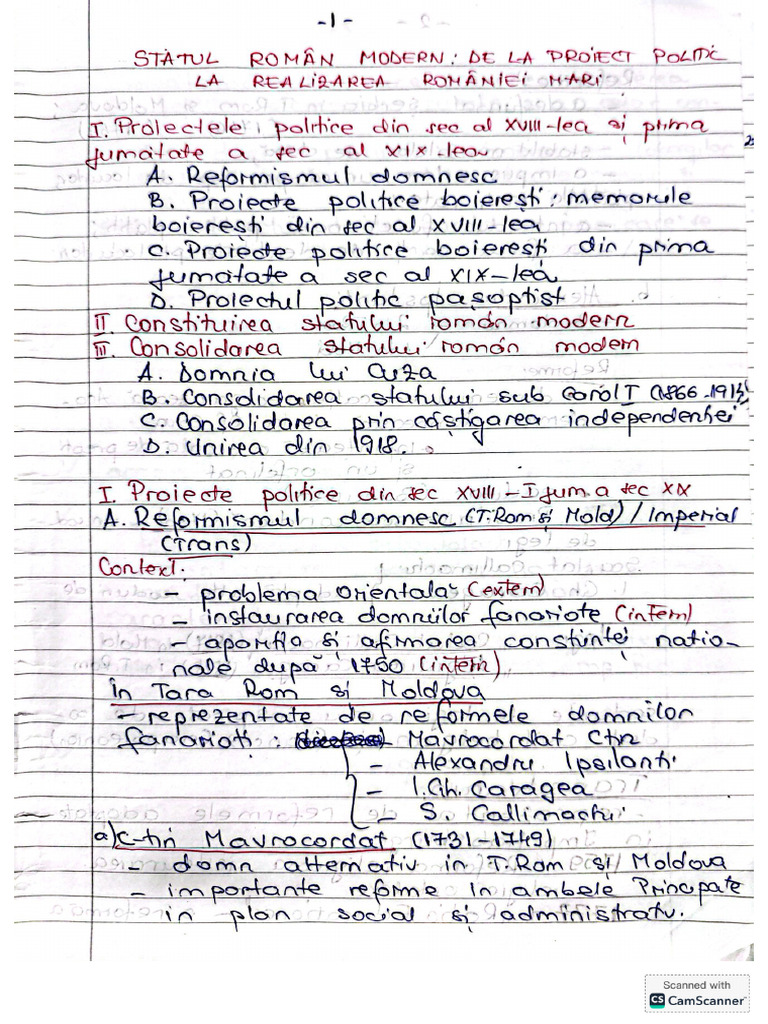 -1-
STATUL ROMÂN MODERN: DE LA PROIECT POLITIC
LA REALIZAREA ROMÂNIEI MARI
I. Proiectele politice din sec al XVIII-lea și prima
jumătate a sec al XIX-lea
A. Reformismul domnesc
B. Proiecte politice boierești: memoriile
boierești din sec al XVIII-lea
C. Proiecte politice boierești din prima
jumătate a sec al XIX-lea
D. Proiectul politic pașoptist
II. Constituirea statului român modern
III. Consolidarea statului român modern
A. Domnia lui Cuza
B. Consolidarea statului sub Carol I (1866-1914)
C. Consolidarea prin câștigarea independenței
D. Unirea din 1918.
I. Proiecte politice din sec XVIII - I jum a sec XIX
A. Reformismul domnesc (T. Rom și Mold) / Imperial
(Trans)
Context:
- problema orientală (extern)
- instaurarea domniilor fanariote (intern)
- apariția și afirmarea conștiinței națio-
nale după 1750 (intern)
În Tara Rom și Moldova
- reprezentate de reformele domnilor
fanarioți: Mavrocordat Ctin
- Alexandru Ipsilanti
- I. Gh. Caragea
- S. Callimachi
a) C-tin Mavrocordat (1731-1749)
- domn alternativ in T. Rom și Moldova
- importante reforme în ambele Principate
in plan social și administrativ.
Scanned with
CS CamScanner